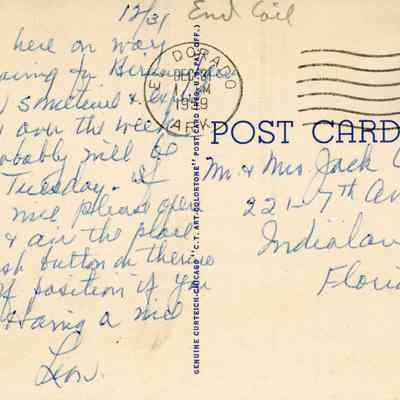 12/31 End Coil
here on way
over the week
probably will be
Tuesday. If
nice please open
& air the place
push button on thermo
of position if you
Having a nice
Leon.
EL DORADO
DEC 31
M
1959
ARK.
GENUINE CURTEICH-CHICAGO "C.T. ART-COLORTONE" POST CARD (REG. U.S. PAT. OFF.)
POST CARD
Mr. & Mrs. Jack
221-7th Av
Indialan
Florid